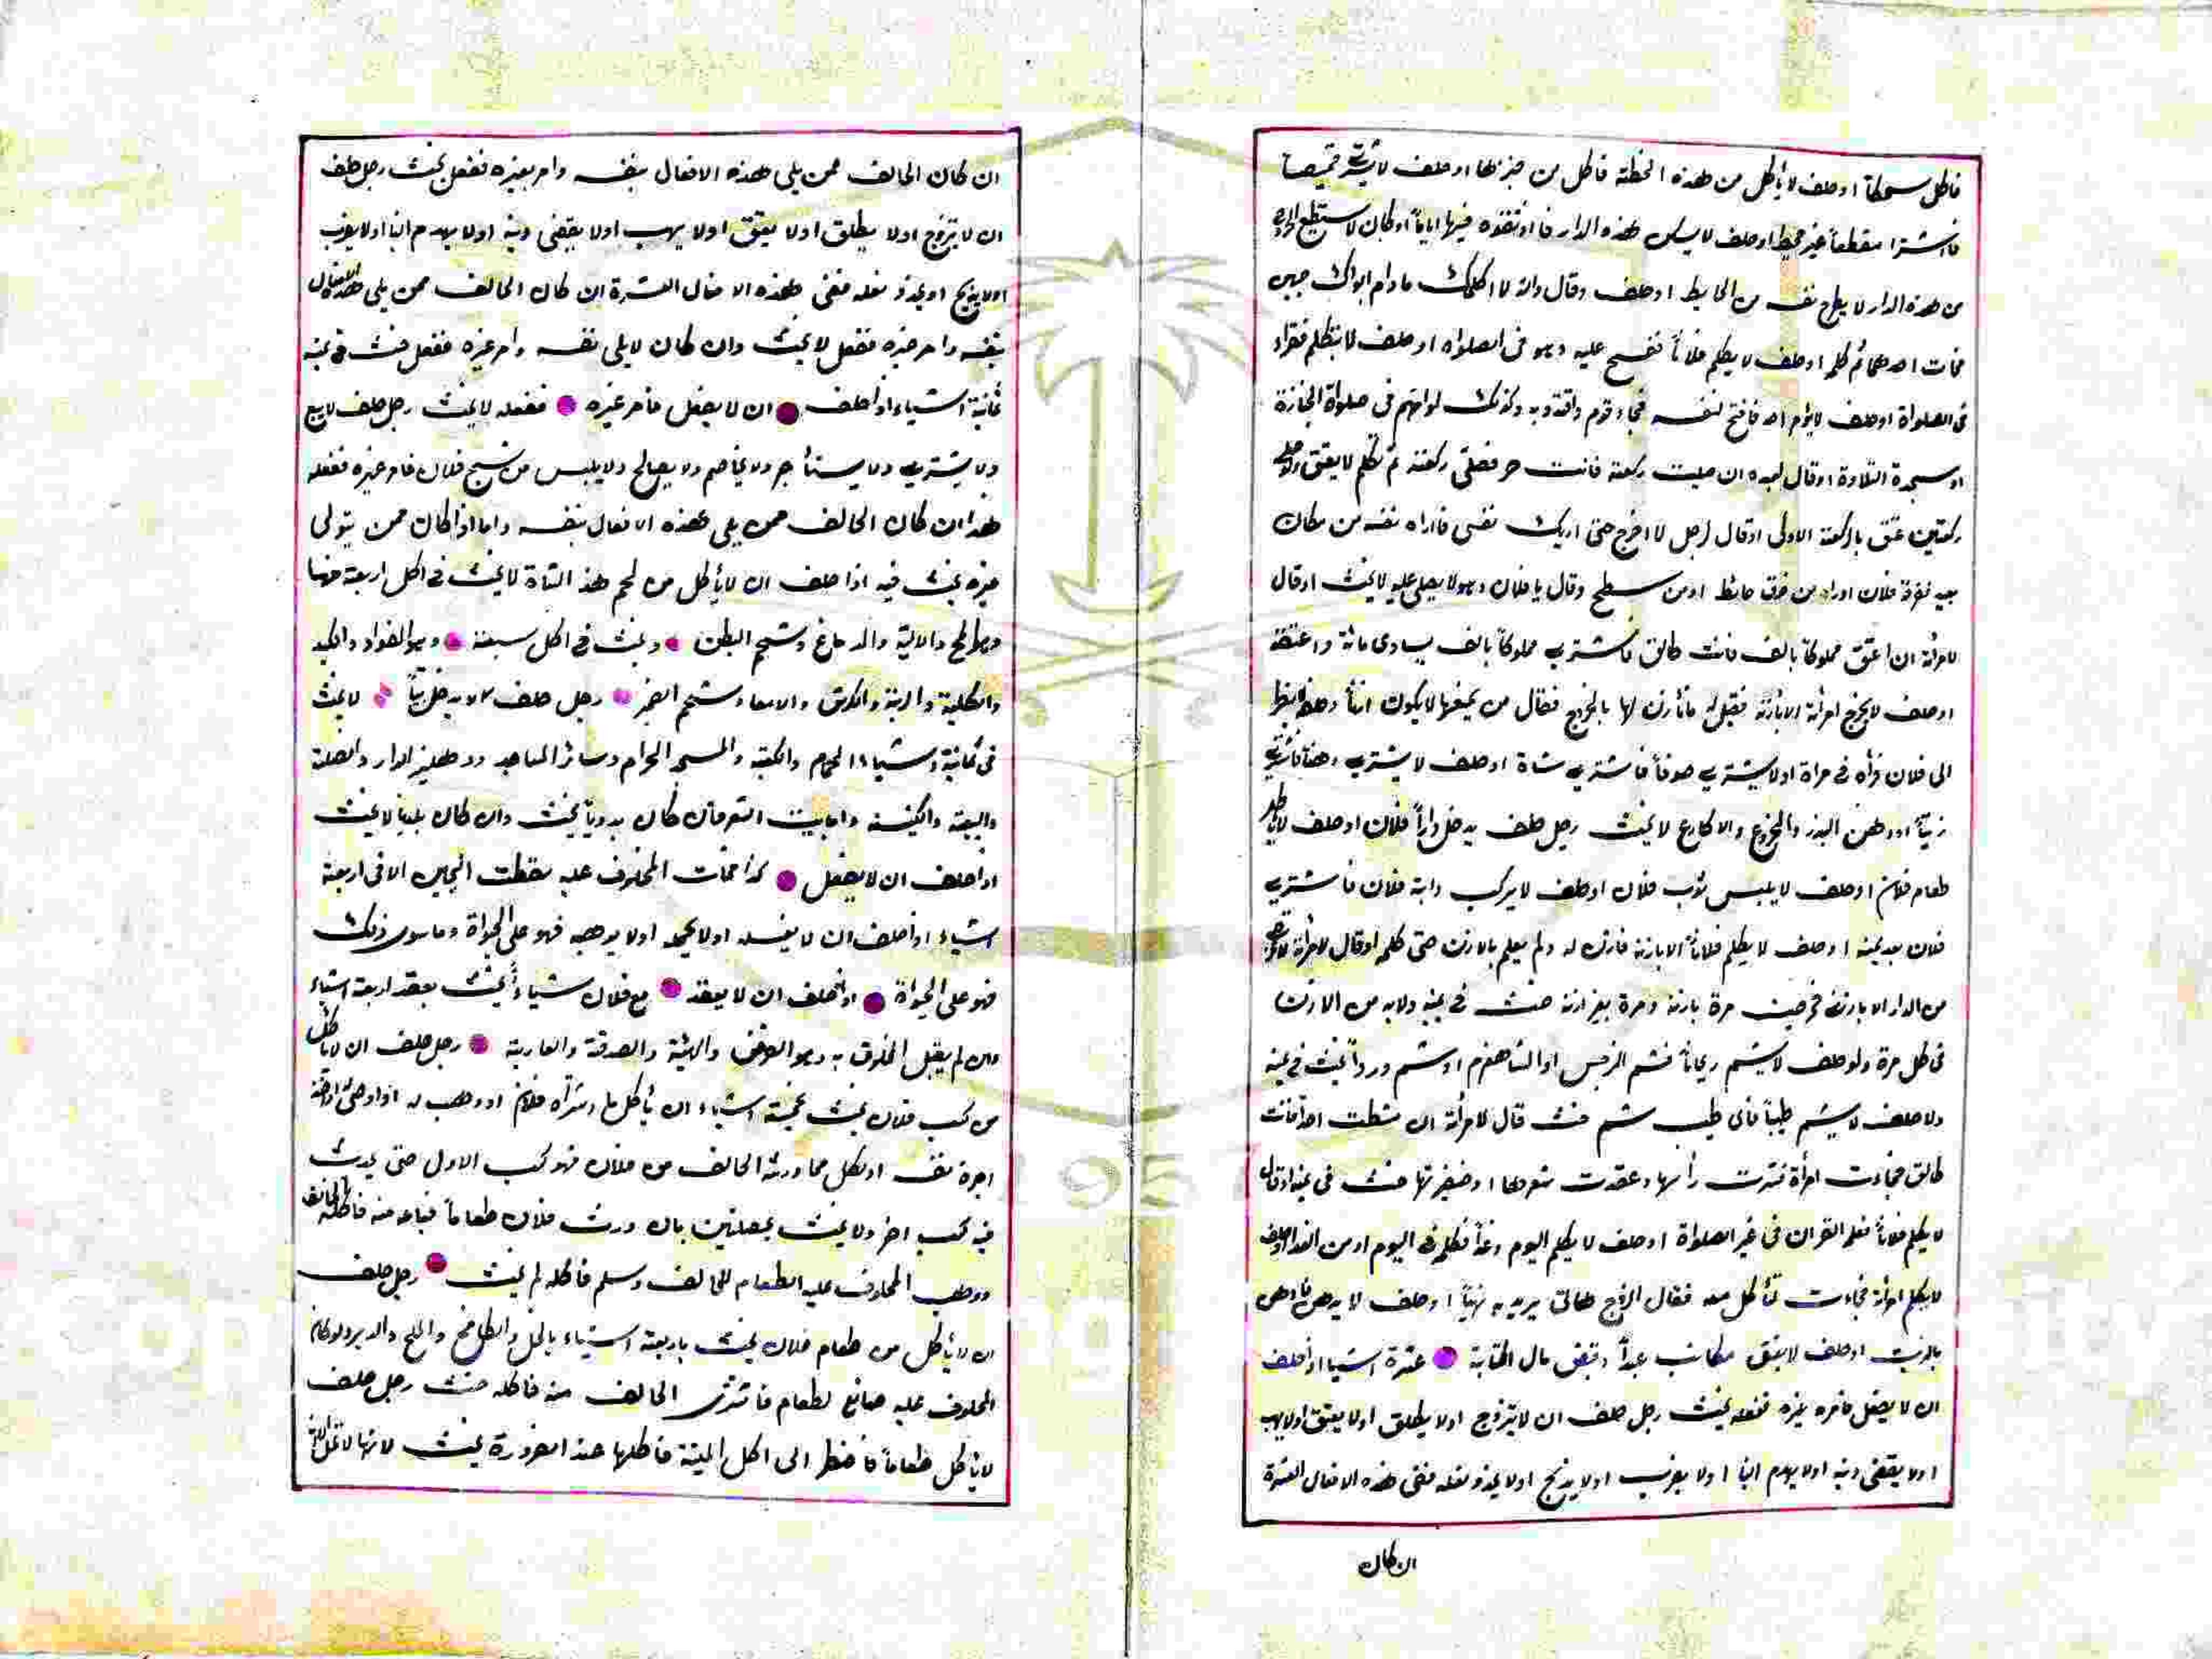 فاكل سمكا او حلف لا يأكل من هذه الحنطة فاكل من خبزها او حلف لا يشتري قميصا
فاشترا مقطعاً غير مخيط او حلف لا يسكن هذه الدار فيها اياماً او كان لا يستطيع الخروج
من هذه الدار لا يطرح نفسه من الحايط او حلف وقال والله لا اكلمك مادام ابواك حيين
فمات احدهما ثم كلم او حلف لا يكلم فلاناً عليه وهو في الصلواة او حلف لا يتكلم فقراء
في الصلواة او حلف لا يؤم احد فافتح لنفسه فجاء قوم واقتدوبه وكذلك لو امهم في صلواة الجنازة
او سجدة التلاوة او قال لعبده ان صليت ركعة فانت حر فصلى ركعة ثم تكلم لا يعتق ولو صلى
ركعتين عتق بالركعة الاولى او قال رجل لا اخرج حتى اريك نفسي فاراه نفسه من مكان
بعيد فلان او من فوق حائط او من سطح وقال يا فلان وهو لا يصل عليه لا يحنث او قال
لامرأته ان اعتق مملوكاً بالف فانت طالق فاشتري مملوكاً بالف يساوى مائة واعتقه
او حلف لا يخرج امرأته الا باذنه فقيل له فأذن لها بالخروج فقال من يمنعها لا يكون اذناً او حلف لا ينظر
الى فلان فرأه في مراة او لا يشتري صوفاً فاشتري شاة او حلف لا يشتري دهناً فاشتري
زيتاً او دهن البذر والخروع والاكارع لا يحنث رجل حلف يدخل داراً فلان او حلف لا يأكل
طعام فلان او حلف لا يلبس ثوب فلان او حلف لا يركب دابة فلان فاشتري
فلان بعد يمينه او حلف لا يكلم فلاناً الا باذنه فاذن له ولم يعلم بالاذن حتى كلمه او قال لامرأته لا تخرجي
من الدار الا باذني فخرجت مرة باذنه ومرة بغير اذنه حنث في يمينه ولابد من الاذن
في كل مرة ولو حلف لا يشم ريحاناً فشم النرجس او الشاهفرم او شم ورداً يحنث في يمينه
ولا حلف لا يشم طيباً فاى طيب شم حنث قال لامرأته ان مشطت احداً فانت
طالق فجاءت امرأة رأسها وعقدت شعرها او ضفيرتها حنث في يمينه او قال
لا يكلم فلاناً القران في غير الصلواة او حلف لا يكلم اليوم وغداً فكلم في اليوم او من الغد او حلف
لا يكلم امرأته فجاءت تأكل معه فقال الزوج هاتى يريد به او حلف لا يدهن فادهن
بالزيت او حلف لا يعتق مكاتب عبداً وقبض مال الكتابة عشرة اشيا اذا حلف
ان لا يفعل فامره غيره ففعله يحنث رجل حلف ان لا يتزوج اولا يطلق اولا يعتق اولا يهب
اولا يقضى دينه اولا يهدم ابناً اولا يضرب اولا يذبح اولا نعله ففى هذه الافعال العشرة
ان كان
ان كان الحالف ممن يلى هذه الافعال بنفسه وامر بغيره ففعل يحنث رجل حلف
ان لا يتزوج اولا يطلق اولا يعتق اولا يهب اولا يقضى دينه اولا يهدم ابنا اولا يضرب
اولا يذبح نعله ففى هذه الافعال العشرة ان كان الحالف ممن يلى هذه الافعال
بنفسه وامر غيره ففعل لا يحنث وان كان لا يلى نفسه وامر غيره ففعل حنث في يمينه
ثمانية اشياء اذا حلف ان لا يفعل فامر غيره ففعله لا يحنث رجل حلف لا يبيع
ولا يشتري ولا يستأجر ولا يخاصم ولا يصالح ولا يلبس من نسج فلان فامر غيره ففعله
هذا ان كان الحالف ممن يلى هذه الافعال بنفسه واما اذا كان ممن يتولى
غيره يحنث فيه اذا حلف ان لا يأكل من لحم هذ الشاة لا يحنث في اكل اربعة منها
والالية والدماغ وشحم البطن ويحنث في اكل سبعة وهو الفواد والكبد
والكلية والرية والكرش والامعاء وشحم رجل حلف لا يدخل بيتاً لا يحنث
في ثمانية اشياء الحمام والكعبة والمسجد الحرام وسائر المساجد ودهليز الدار والصلة
والبيعة والكنيسة واما بيت الشعر فان كان بدوياً يحنث وان كان بلدياً لا يحنث
اذا حلف ان لا يفعل كذا فمات المحلوف عليه سقطت اليمين الا في اربعة
اشياء اذا حلف ان لا يغسله اولا يحمله اولا يوهبه فهو على الحيواة وما سوى ذلك
فهو على الحيواة اذا حلف ان لا يعقد مع فلان شياءً يحنث بعقد اربعة اشياء
وان لم يقبل المحلوف به وهو القرض والهبة والصدقة والعارية رجل حلف ان لا يأكل
من كسب فلان يحنث بخمسة اشياء ان يأكل ما اشتراه فلان او وهب له او اوصى
اجرة نفسه او يأكل مما ورثه الحالف من فلان فهو كسب الاول حتى يحدث
فيه كسب اخر ولا يحنث بخصلتين بان ورث فلان طعاماً فباعه منه فاكله الحالف
ووهب المحلوف عليه الطعام للحالف وسلم فاكله لم يحنث رجل حلف
ان لا يأكل من طعام فلان يحنث باربعة اشياء بالخل والكامخ والملح
المحلوف عليه صانع لطعام فاشترى الحالف منه فاكله حنث رجل حلف
لا يأكل طعاماً فاضطر الى اكل الميتة فاكلها عند الضرورة يحنث لانها